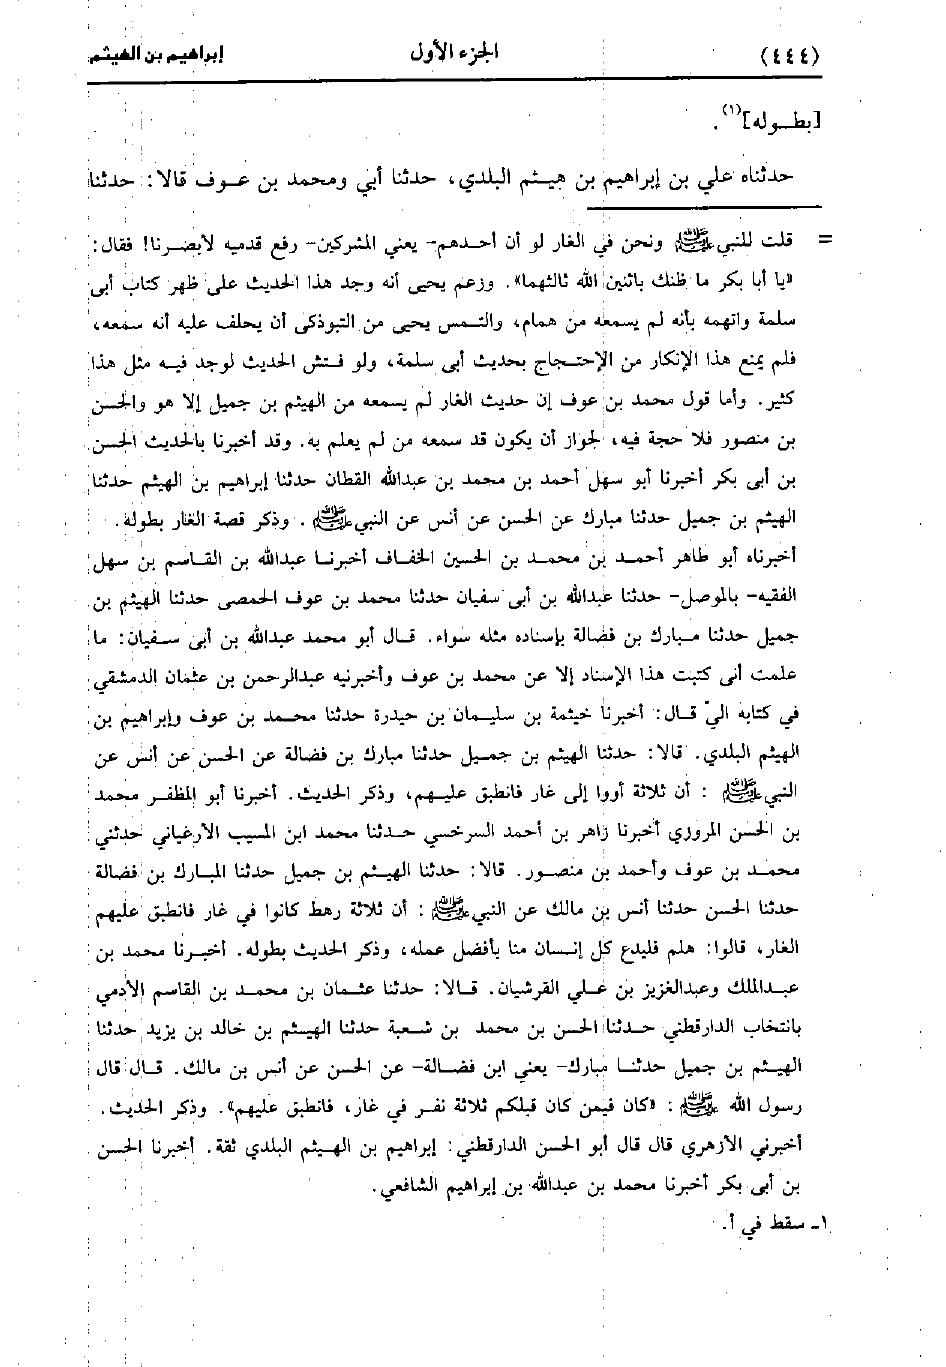 (٤٤٤) الجزء الأول إبراهيم بن الهيثم
[بطوله](١).
حدثناه علي بن إبراهيم بن هيثم البلدي، حدثنا أبي ومحمد بن عوف قالا: حدثنا
= قلت للنبي ﷺ ونحن في الغار لو أن أحدهم- يعني المشركين- رفع قدميه لأبصرنا! فقال:
«يا أبا بكر ما ظنك باثنين الله ثالثهما». وزعم يحيى أنه وجد هذا الحديث على ظهر كتاب أبى
سلمة واتهمه بأنه لم يسمعه من همام، والتمس يحيى من التبوذكى أن يحلف عليه أنه سمعه،
فلم يمنع هذا الإنكار من الإحتجاج بحديث أبى سلمة، ولو فتش الحديث لوجد فيه مثل هذا
كثير. وأما قول محمد بن عوف إن حديث الغار لم يسمعه من الهيثم بن جميل إلا هو والحسن
بن منصور فلا حجة فيه، لجواز أن يكون قد سمعه من لم يعلم به. وقد أخبرنا بالحديث الحسن
بن أبى بكر أخبرنا أبو سهل أحمد بن محمد بن عبدالله القطان حدثنا إبراهيم بن الهيثم حدثنا
الهيثم بن جميل حدثنا مبارك عن الحسن عن أنس عن النبي ﷺ . وذكر قصة الغار بطوله.
أخبرناه أبو طاهر أحمد بن محمد بن الحسين الخفاف أخبرنا عبدالله بن القاسم بن سهل
الفقيه- بالموصل- حدثنا عبدالله بن أبى سفيان حدثنا محمد بن عوف الحمصى حدثنا الهيثم بن
جميل حدثنا مبارك بن فضالة بإسناده مثله سواء. قال أبو محمد عبدالله بن أبى سفيان: ما
علمت أنى كتبت هذا الإسناد إلا عن محمد بن عوف وأخبرنيه عبدالرحمن بن عثمان الدمشقي
في كتابه اليّ قال: أخبرنا خيثمة بن سليمان بن حيدرة حدثنا محمد بن عوف وإبراهيم بن
الهيثم البلدي. قالا: حدثنا الهيثم بن جميل حدثنا مبارك بن فضالة عن الحسن عن أنس عن
النبي ﷺ : أن ثلاثة أووا إلى غار فانطبق عليهم، وذكر الحديث. أخبرنا أبو المظفر محمد
بن الحسن المروزي أخبرنا زاهر بن أحمد السرخسي حدثنا محمد ابن المسيب الأرغياني حدثني
محمد بن عوف وأحمد بن منصور. قالا: حدثنا الهيثم بن جميل حدثنا المبارك بن فضالة
حدثنا الحسن حدثنا أنس بن مالك عن النبي ﷺ : أن ثلاثة رهط كانوا في غار فانطبق عليهم
الغار، قالوا: هلم فليدع كل إنسان منا بأفضل عمله، وذكر الحديث بطوله. أخبرنا محمد بن
عبدالملك وعبدالعزيز بن علي القرشيان. قالا: حدثنا عثمان بن محمد بن القاسم الأدمي
بانتخاب الدارقطني حدثنا الحسن بن محمد بن شعبة حدثنا الهيثم بن خالد بن يزيد حدثنا
الهيثم بن جميل حدثنا مبارك- يعني ابن فضالة- عن الحسن عن أنس بن مالك. قال قال
رسول الله ﷺ : «كان فيمن كان قبلكم ثلاثة نفر في غار، فانطبق عليهم». وذكر الحديث.
أخبرني الأزهري قال قال أبو الحسن الدارقطني: إبراهيم بن الهيثم البلدي ثقة. أخبرنا الحسن
بن أبى بكر أخبرنا محمد بن عبدالله بن إبراهيم الشافعي.
١ـ سقط في أ.